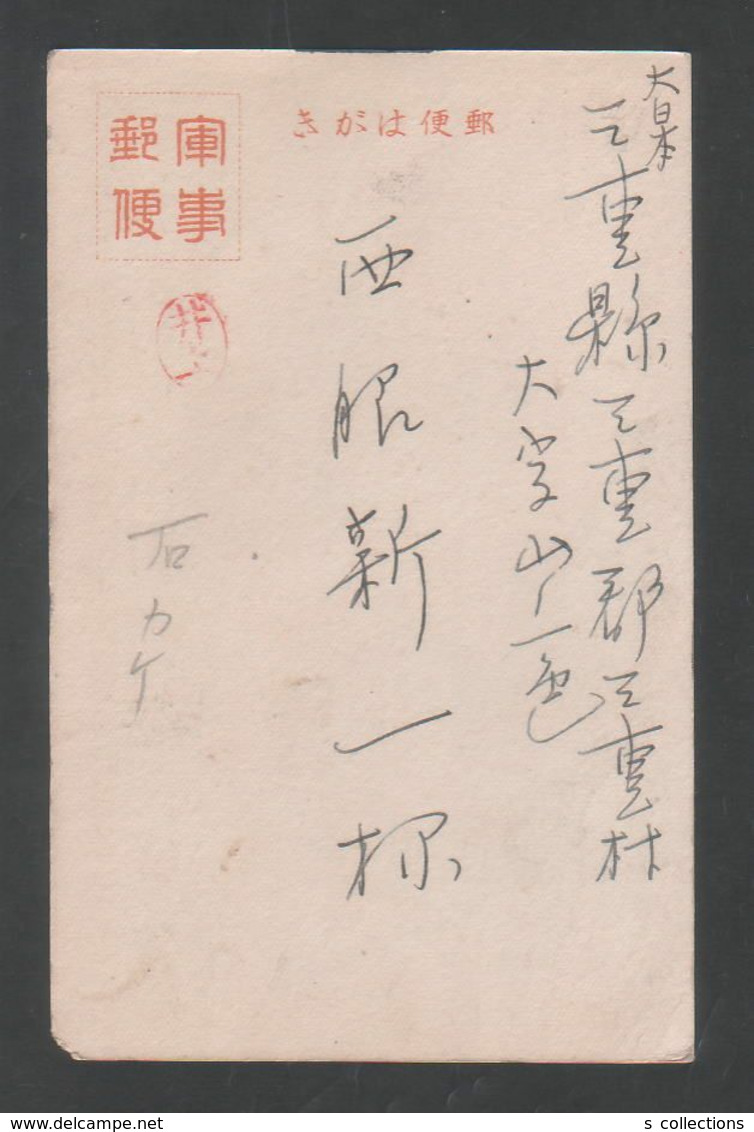 郵便はがき
軍事
郵便
大日本
三重縣三重郡三重村
大字山ノ一色
西脇新一様
石カケ
s collections